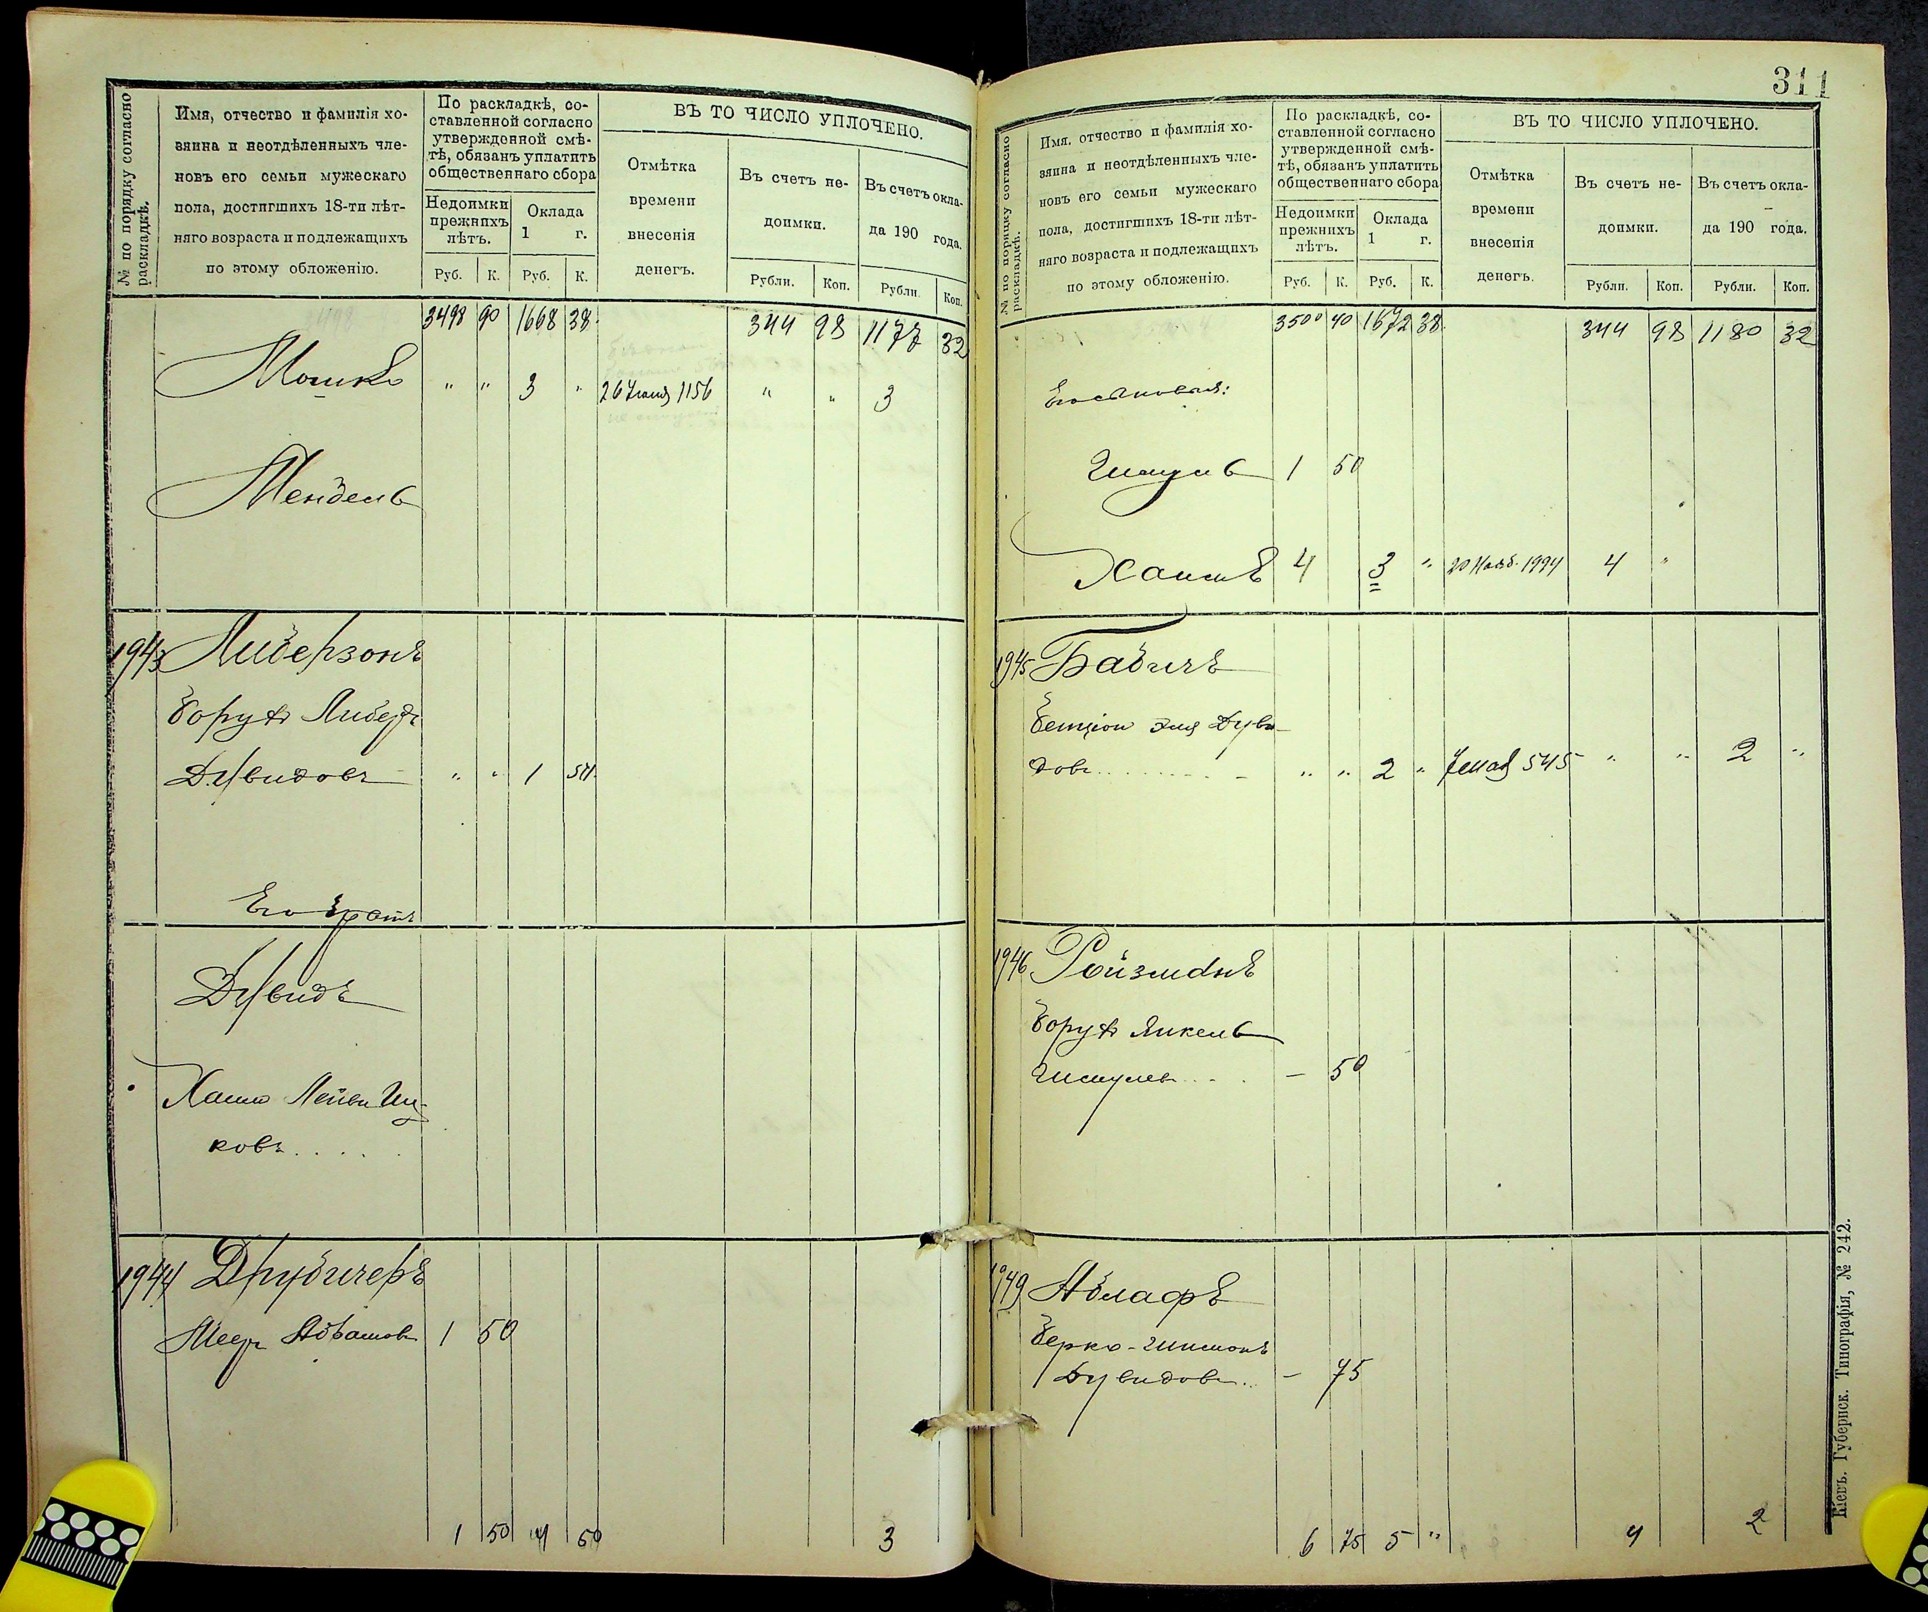 № по порядку согласно раскладкѣ.
Имя, отчество и фамилія хо-
зяина и неотдѣленныхъ чле-
новъ его семьи мужескаго
пола, достигшихъ 18-ти лѣт-
няго возраста и подлежащихъ
по этому обложенію.
По раскладкѣ, со-
ставленной согласно
утвержденной смѣ-
тѣ, обязанъ уплатить
общественнаго сбора
Недоимки
прежнихъ
лѣтъ.
Оклада
1 г.
Руб. К. Руб. К.
ВЪ ТО ЧИСЛО УПЛОЧЕНО.
Отмѣтка
времени
внесенія
денегъ.
Въ счетъ не-
доимки.
Въ счетъ окла-
да 190 года.
Рубли. Коп. Рубли. Коп.
3498 90 1668 38 344 98 1177 32
Мошко " " 3 " 1156 " " 3
Мендель
1943 Либерзонъ
Борухъ Либер
Дувидовъ " " 1 50
Его братъ
Дувидъ
Хаимъ Лейви Иц-
ковъ . . . . .
1944 Друбичеръ
Меер Абрамов 1 50
1 50 4 50 3
311
№ по порядку согласно раскладкѣ.
Имя, отчество и фамилія хо-
зяина и неотдѣленныхъ чле-
новъ его семьи мужескаго
пола, достигшихъ 18-ти лѣт-
няго возраста и подлежащихъ
по этому обложенію.
По раскладкѣ, со-
ставленной согласно
утвержденной смѣ-
тѣ, обязанъ уплатить
общественнаго сбора
Недоимки
прежнихъ
лѣтъ.
Оклада
1 г.
Руб. К. Руб. К.
ВЪ ТО ЧИСЛО УПЛОЧЕНО.
Отмѣтка
времени
внесенія
денегъ.
Въ счетъ не-
доимки.
Въ счетъ окла-
да 190 года.
Рубли. Коп. Рубли. Коп.
3500 40 1672 38 344 98 1180 32
Его сыновья:
Шмуль 1 50
Хаимъ 4 3 " 20 Нояб. 1994 4 "
1945 Бабичъ
Бенціон Эля Дуви-
довъ . . . . . . . " " 2 " 7 мая 545 " " 2 "
1946 Ройзманъ
Борухъ Янкель
Шмулев . . . — 50
1949 Аблафъ
Берко-Шимонъ
Дувидовъ .. — 75
6 75 5 " 4 2
Кіевъ. Губернск. Типографія, № 242.